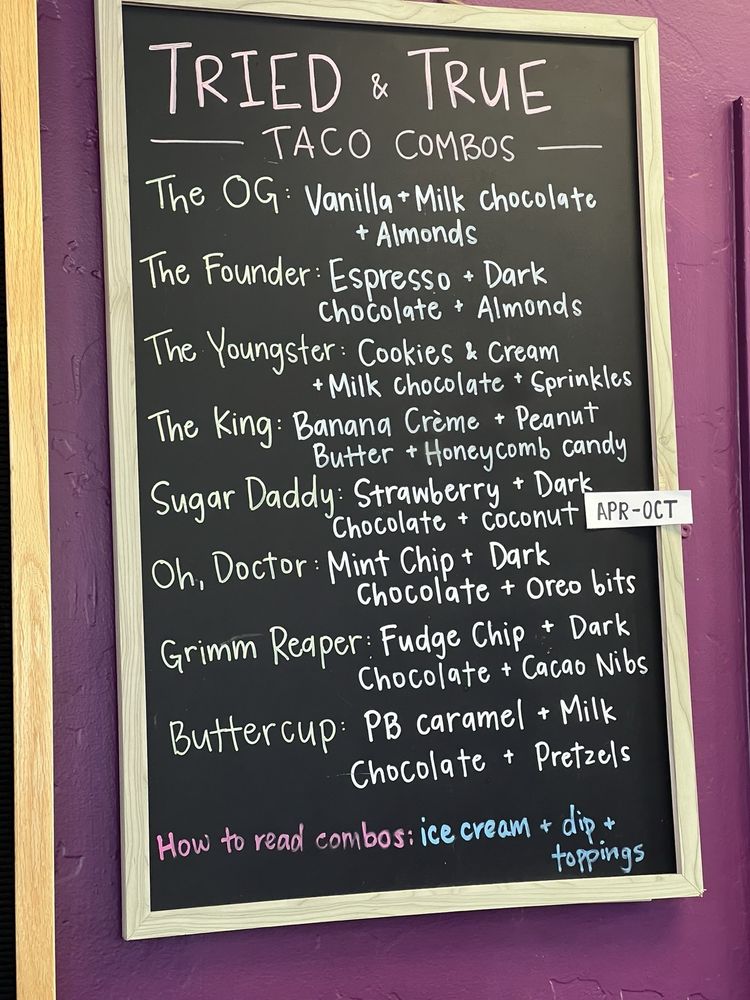 TRIED & TRUE
TACO COMBOS
The OG: Vanilla + Milk chocolate
+ Almonds
The Founder: Espresso + Dark
Chocolate + Almonds
The Youngster: Cookies & Cream
+ Milk chocolate + Sprinkles
The King: Banana Crème + Peanut
Butter + Honeycomb candy
Sugar Daddy: Strawberry + Dark
Chocolate + coconut APR-OCT
Oh, Doctor: Mint Chip + Dark
Chocolate + Oreo bits
Grimm Reaper: Fudge Chip + Dark
Chocolate + Cacao Nibs
Buttercup: PB caramel + Milk
Chocolate + Pretzels
How to read combos: ice cream + dip +
toppings